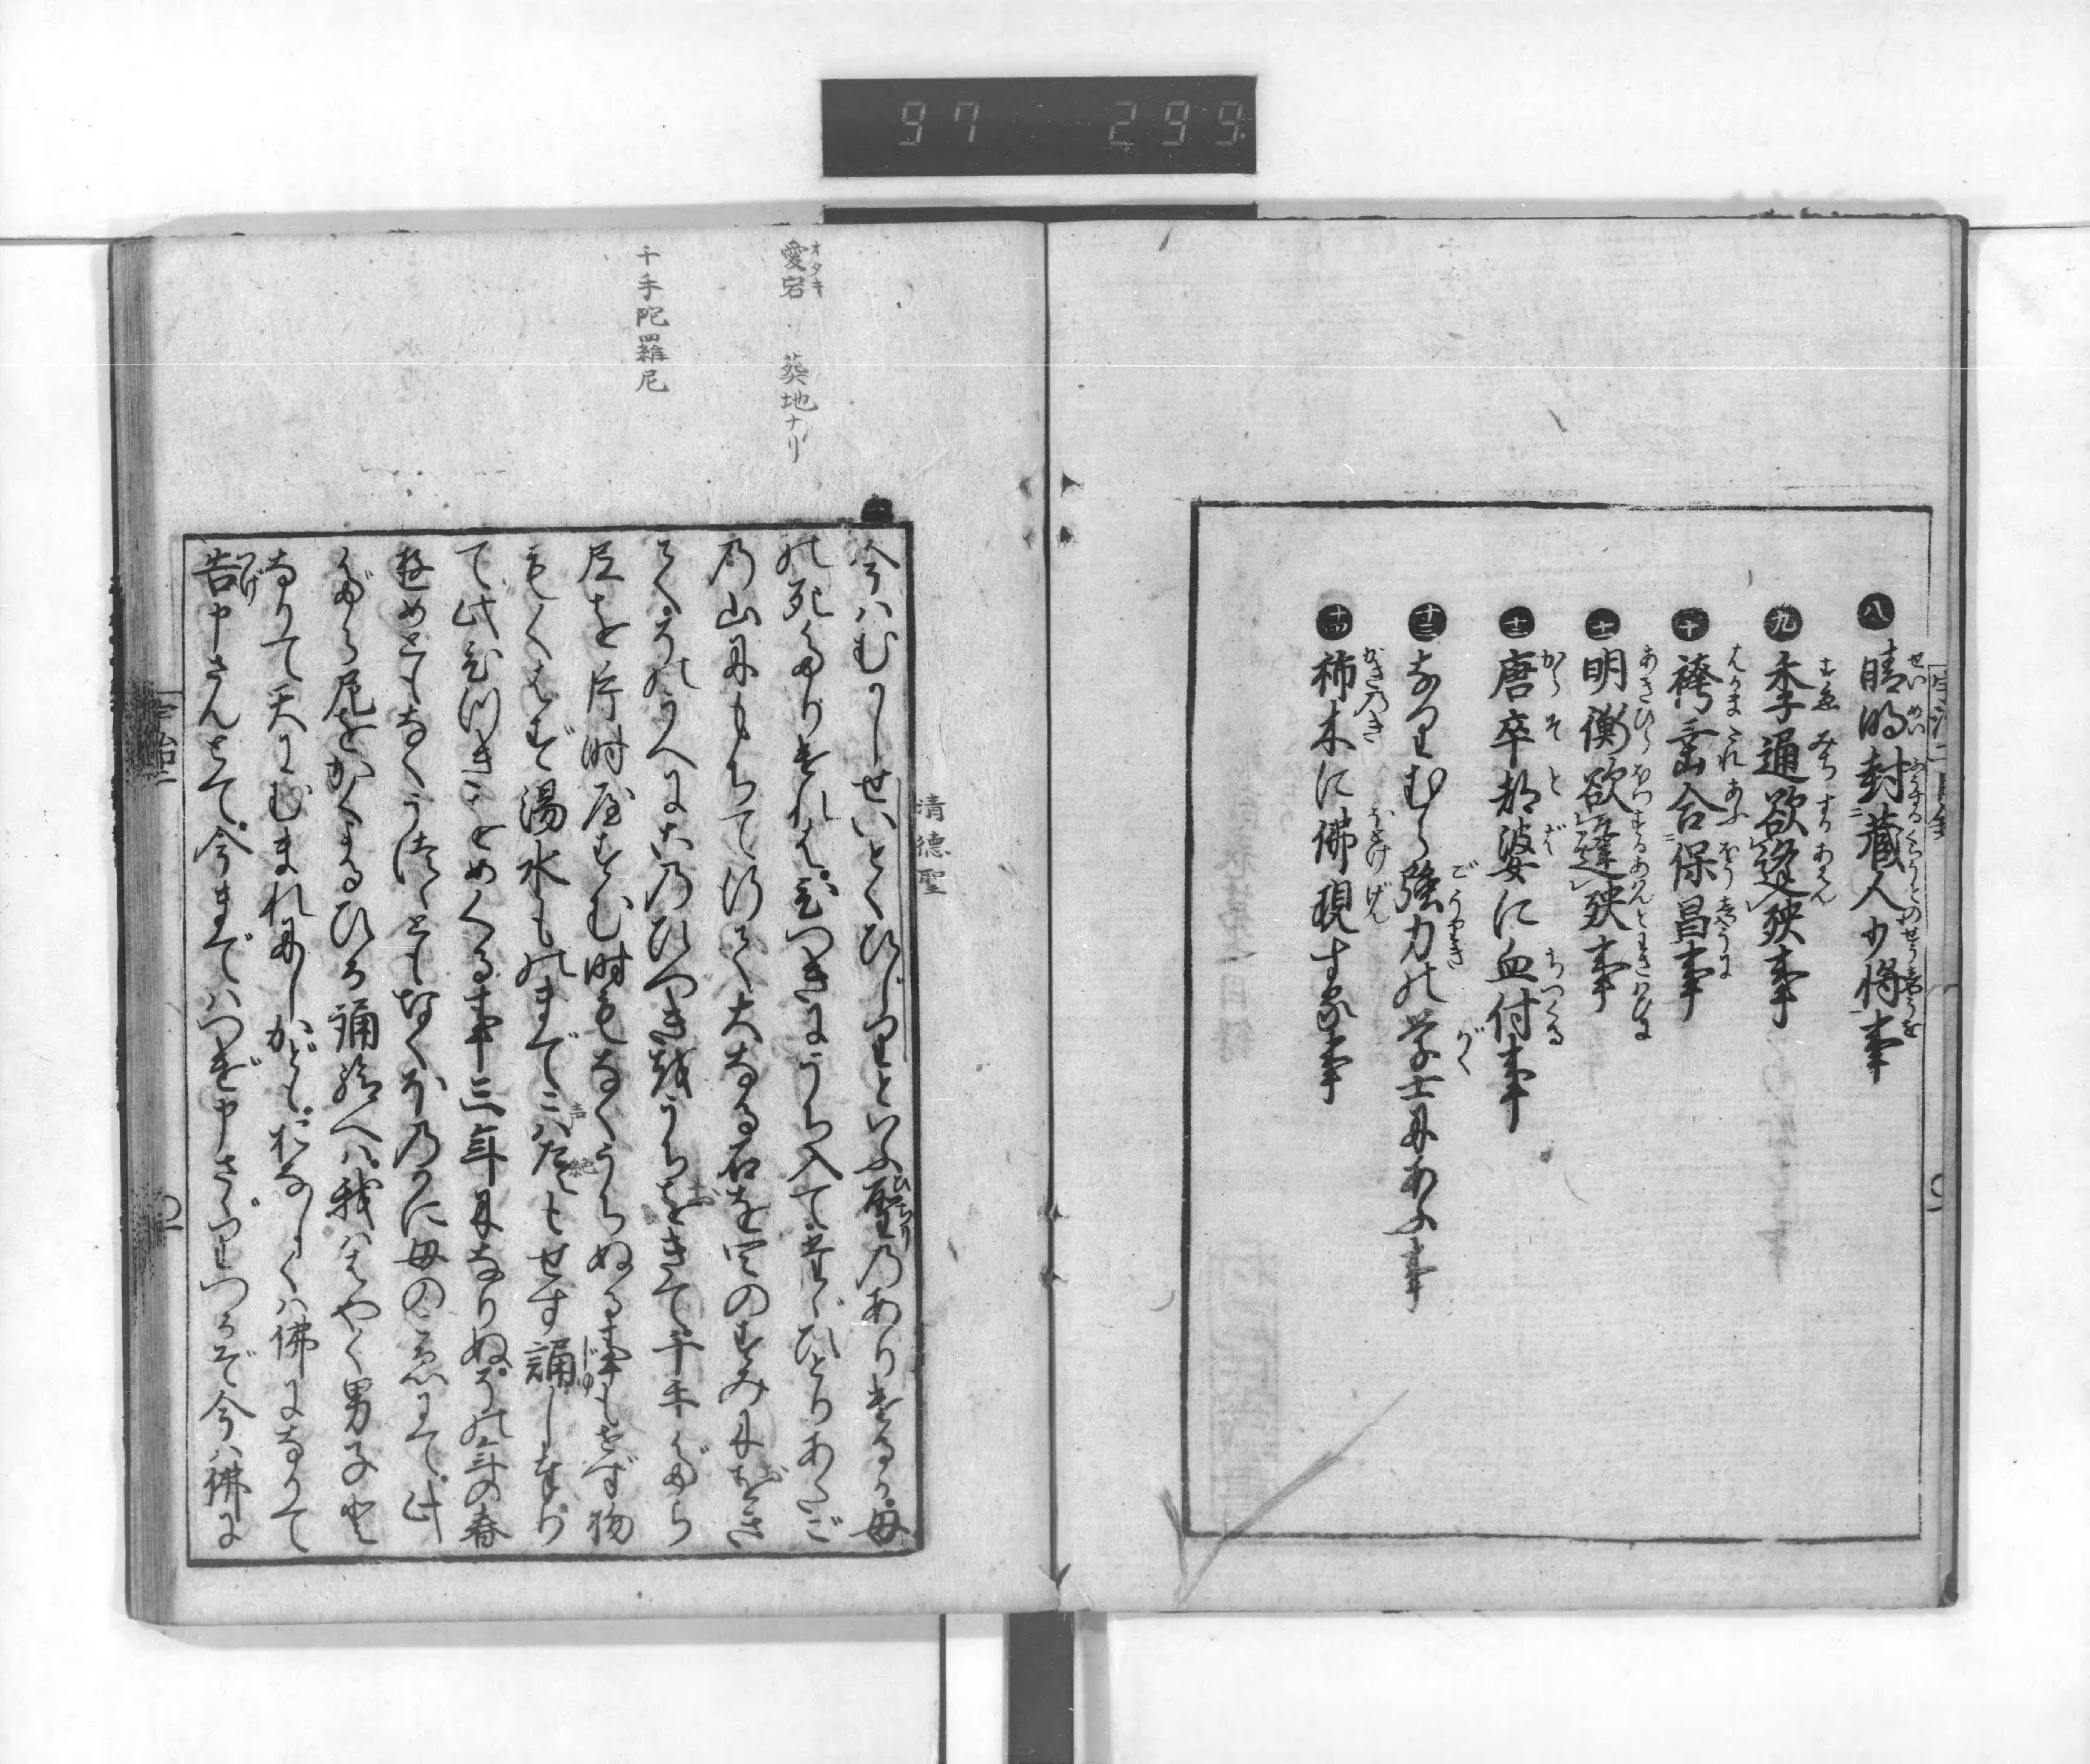 97 299
八 晴明封蔵人少将事
九 季通欲逢殃事
十 袴垂合保昌事
十一 明衡欲逢殃事
十二 唐卒都婆に血付事
十三 なりむら強力の学士にあふ事
十四 柿木に佛現する事
愛宕 葬地ナリ
オタキ
千手陀羅尼
清徳聖
今はむかしせいとくひじりといふ聖のありけるが母
の死たりければひつぎにうち入てたゞひとりあたご
の山にもちて行て大なる石を四のすみにをき
てそのうへにこのひつぎをうちをきて千手だら
尼を片時屋すむ時もなくうちぬる事もせず物
もくはず湯水ものまでこはだえもせず誦し奉り
て此ひつぎをめぐる事三年になりぬその年の春
夢ともなくうつゝともなくほのかに母の聲にて此
だらにをかくよるひる誦給へば我ははやく男子と
なりて天にむまれにしかどもおなじくは佛になりて
告申さんとて今まではつげ申さゞりつるぞ今は佛に
宇治二